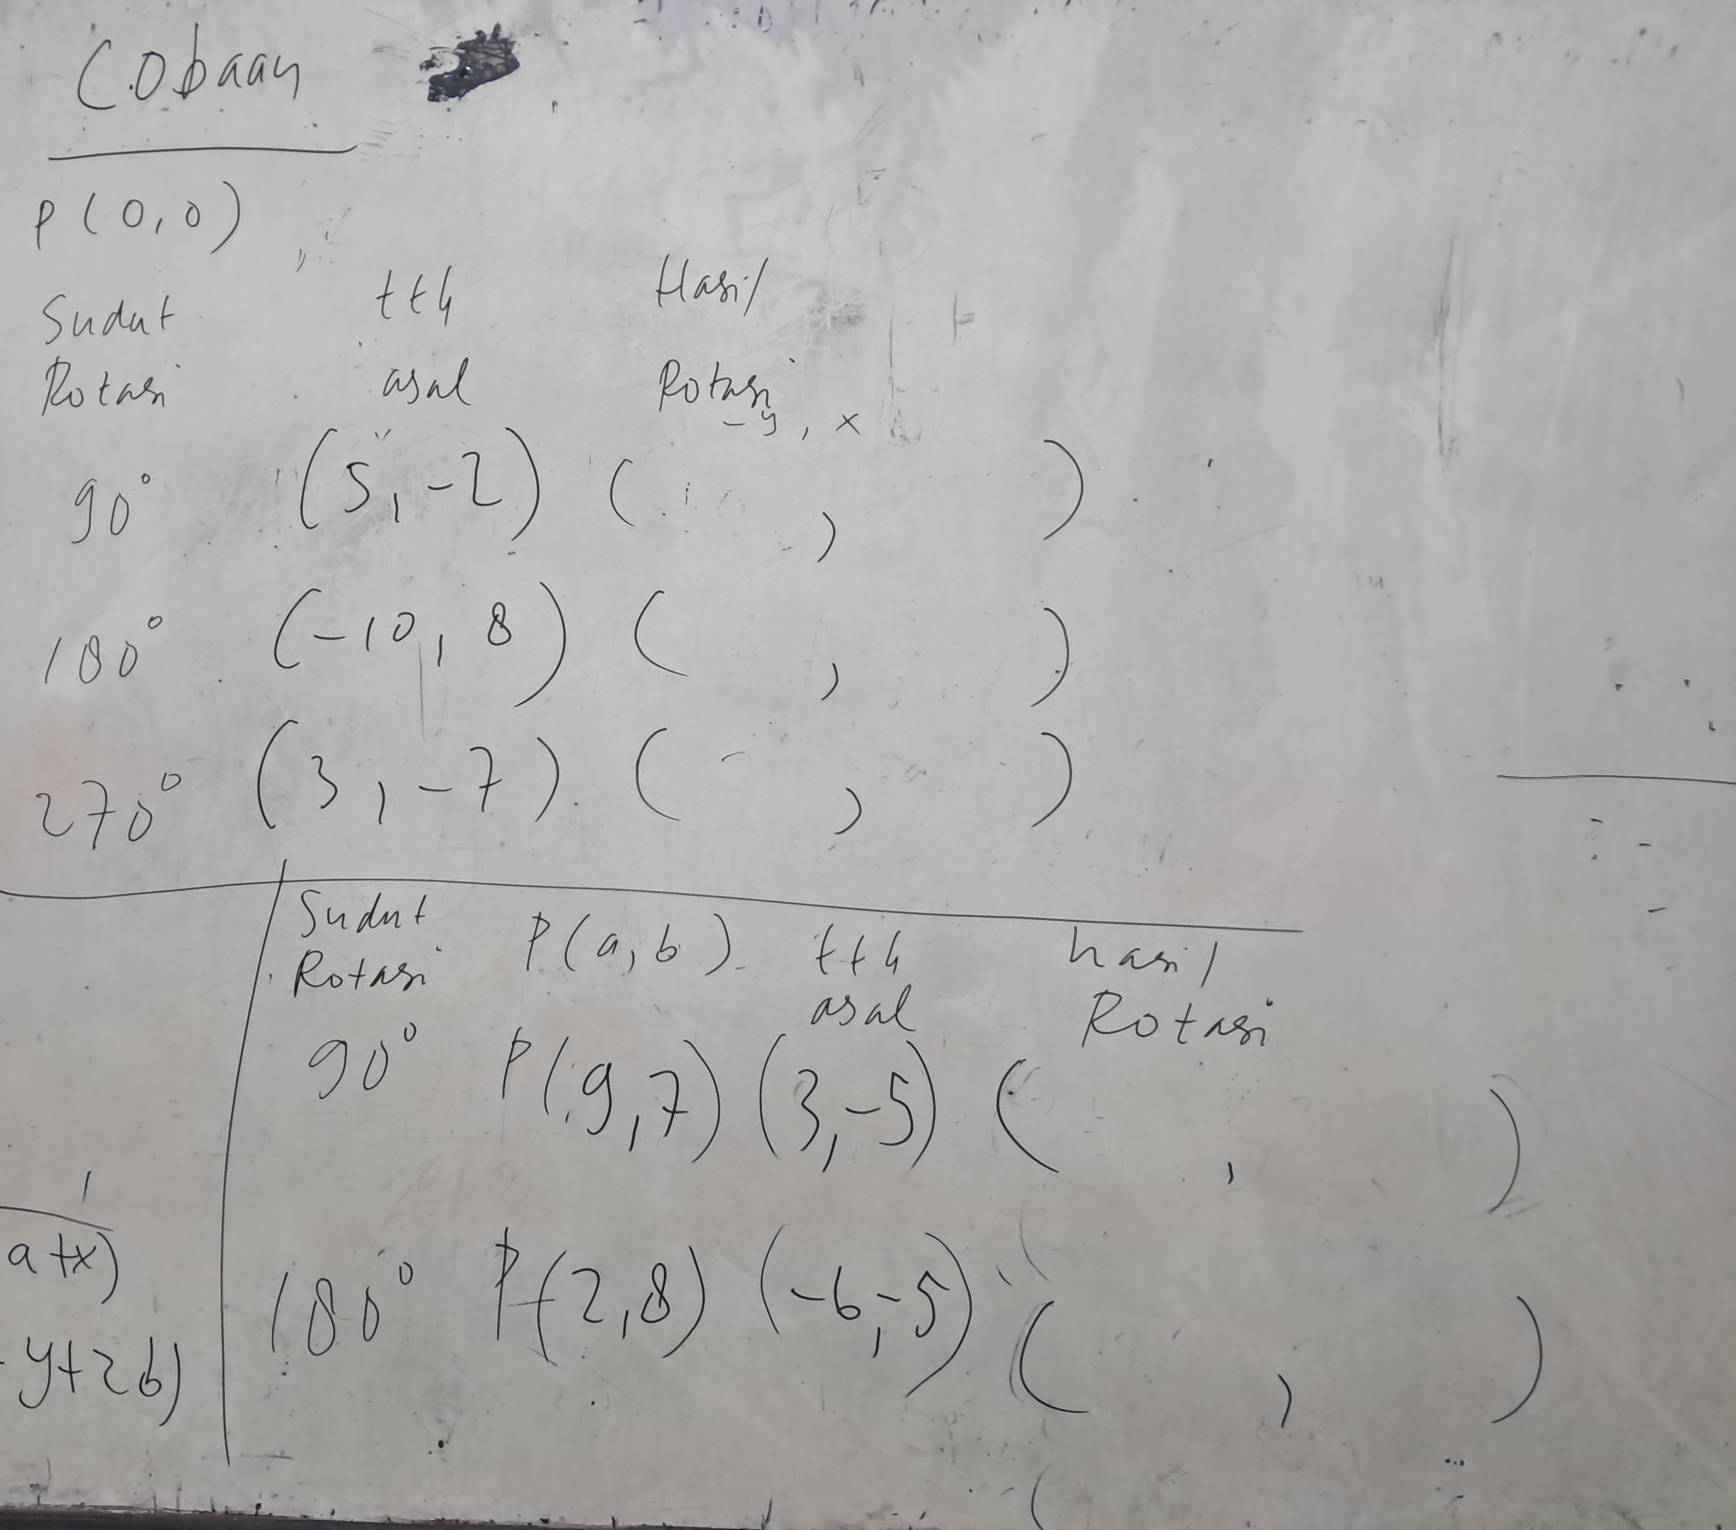 Cobaan
P(0,0)
Sudut tth Hasil
Rotasi asal Rotasi
-y, x
90° (5,-2) ( , )
180° (-10, 8) ( , )
270° (3,-7) ( , )
Sudut P(a,b) tth hasil
Rotasi asal Rotasi
90° P(9,7) (3,-5) ( , )
a+x)
180° P(2,8) (-6,-5) ( , )
y+2b)